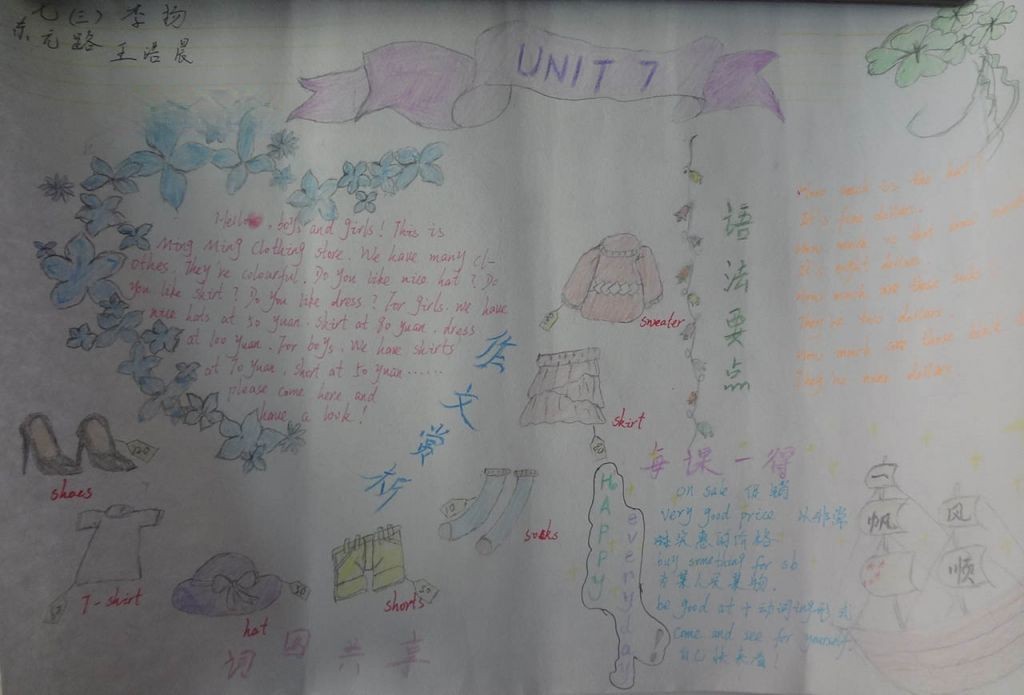 七(三) 李扬
东元路 王浩晨
UNIT 7
Hello, boys and girls! This is
Ming Ming Clothing store. We have many cl-
othes. They're colourful. Do you like nice hat? Do
you like skirt? Do you like dress? For girls. We have
nice hats at 50 yuan. skirt at 80 yuan. dress
at 100 yuan. For boys. We have shirts
at 70 yuan. short at 50 yuan......
please come here and
have a look!
佳文赏析
shoes
T-shirt
hat
shorts
socks
词图共享
sweater
skirt
语法要点
How much is the hat?
It's five dollars.
How much is that
It's eight dollars.
How much are these socks?
They're two dollars.
How much are those
They're nine dollars.
每课一得
on sale 促销
very good price 以非常
实惠的价格
buy something for sb
为某人买某物.
be good at + 动词ing形式
Come and see for yourself.
自己快来看!
HAPPY
everyday!
一帆
风顺